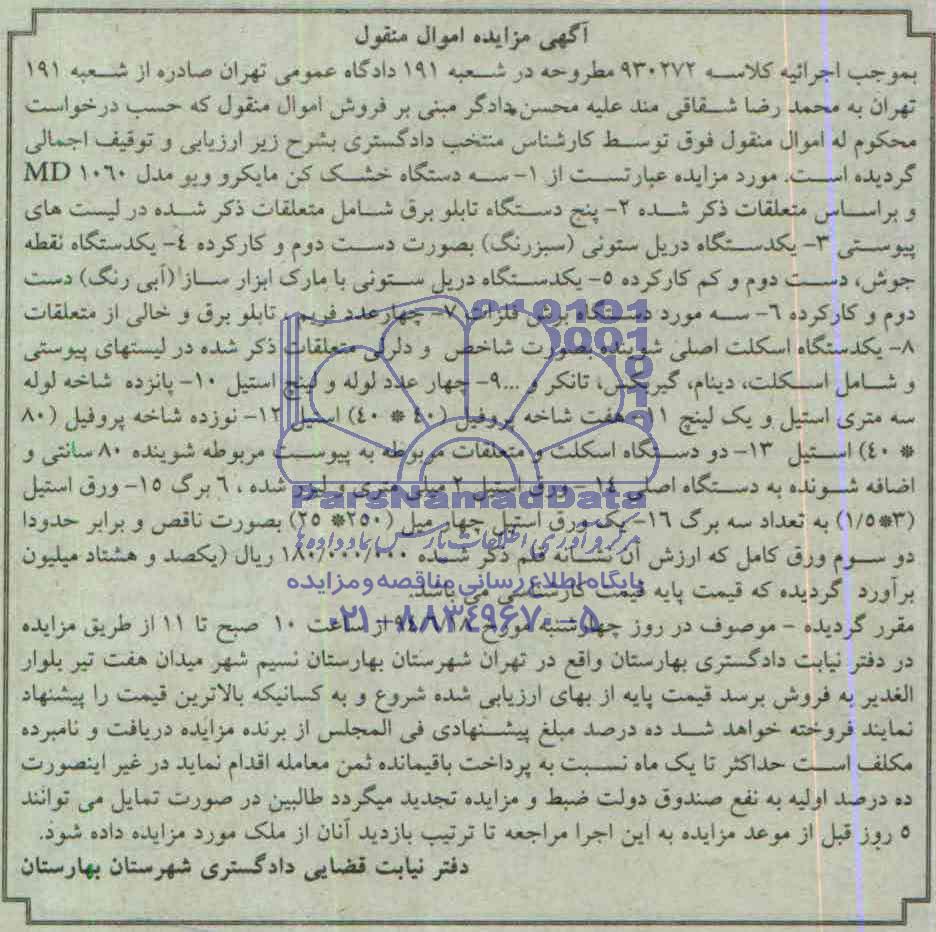 آگهی مزایده اموال منقول
بموجب اجرائیه کلاسه ۹۳۰۲۷۲ مطروحه در شعبه ۱۹۱ دادگاه عمومی تهران صادره از شعبه ۱۹۱
تهران به محمد رضا شقاقی مند علیه محسن دادگر مبنی بر فروش اموال منقول که حسب درخواست
محکوم له اموال منقول فوق توسط کارشناس منتخب دادگستری بشرح زیر ارزیابی و توقیف اجمالی
گردیده است. مورد مزایده عبارتست از ۱- سه دستگاه خشک کن مایکرو ویو مدل MD ۱۰۶۰
و براساس متعلقات ذکر شده ۲- پنج دستگاه تابلو برق شامل متعلقات ذکر شده در لیست های
پیوستی ۳- یکدستگاه دریل ستونی (سبزرنگ) بصورت دست دوم و کارکرده ۴- یکدستگاه نقطه
جوش، دست دوم و کم کارکرده ۵- یکدستگاه دریل ستونی با مارک ابزار ساز (آبی رنگ) دست
دوم و کارکرده ۶- سه مورد دستگاه برش فلزات ۷- چهارعدد فریم تابلو برق و خالی از متعلقات
۸- یکدستگاه اسکلت اصلی شوینده بصورت شاخص و دلرلی متعلقات ذکر شده در لیستهای پیوستی
و شامل اسکلت، دینام، گیربکس، تانکر و ...۹- چهار عدد لوله و لینچ استیل ۱۰- پانزده شاخه لوله
سه متری استیل و یک لینچ ۱۱- هفت شاخه پروفیل (۴۰ * ۴۰) استیل ۱۲- نوزده شاخه پروفیل (۸۰
* ۴۰) استیل ۱۳- دو دستگاه اسکلت و متعلقات مربوطه به پیوست مربوطه شوینده ۸۰ سانتی و
اضافه شونده به دستگاه اصلی ۱۴- ورق استیل ۲ میلی متری و لیزر شده ، ۶ برگ ۱۵- ورق استیل
(۳*۱/۵) به تعداد سه برگ ۱۶- یک ورق استیل چهار میل (۲۵۰* ۲۵) بصورت ناقص و برابر حدودا
دو سوم ورق کامل که ارزش آن قلم ذکر شده ۱۸۰/۰۰۰/۰۰۰ ریال (یکصد و هشتاد میلیون
برآورد گردیده که قیمت پایه قیمت کارشناسی می باشد.
مقرر گردیده - موصوف در روز چهارشنبه مورخ ۹۴/۸/۲۸ از ساعت ۱۰ صبح تا ۱۱ از طریق مزایده
در دفتر نیابت دادگستری بهارستان واقع در تهران شهرستان بهارستان نسیم شهر میدان هفت تیر بلوار
الغدیر به فروش برسد قیمت پایه از بهای ارزیابی شده شروع و به کسانیکه بالاترین قیمت را پیشنهاد
نمایند فروخته خواهد شد ده درصد مبلغ پیشنهادی فی المجلس از برنده مزایده دریافت و نامبرده
مکلف است حداکثر تا یک ماه نسبت به پرداخت باقیمانده ثمن معامله اقدام نماید در غیر اینصورت
ده درصد اولیه به نفع صندوق دولت ضبط و مزایده تجدید میگردد طالبین در صورت تمایل می توانند
۵ روز قبل از موعد مزایده به این اجرا مراجعه تا ترتیب بازدید آنان از ملک مورد مزایده داده شود.
دفتر نیابت قضایی دادگستری شهرستان بهارستان
ParsNamadData
مرکز فرآوری اطلاعات پارس نماد داده‌ها
پایگاه اطلاع رسانی مناقصه و مزایده
۰۲۱-۸۸۳۴۹۶۷۰-۵